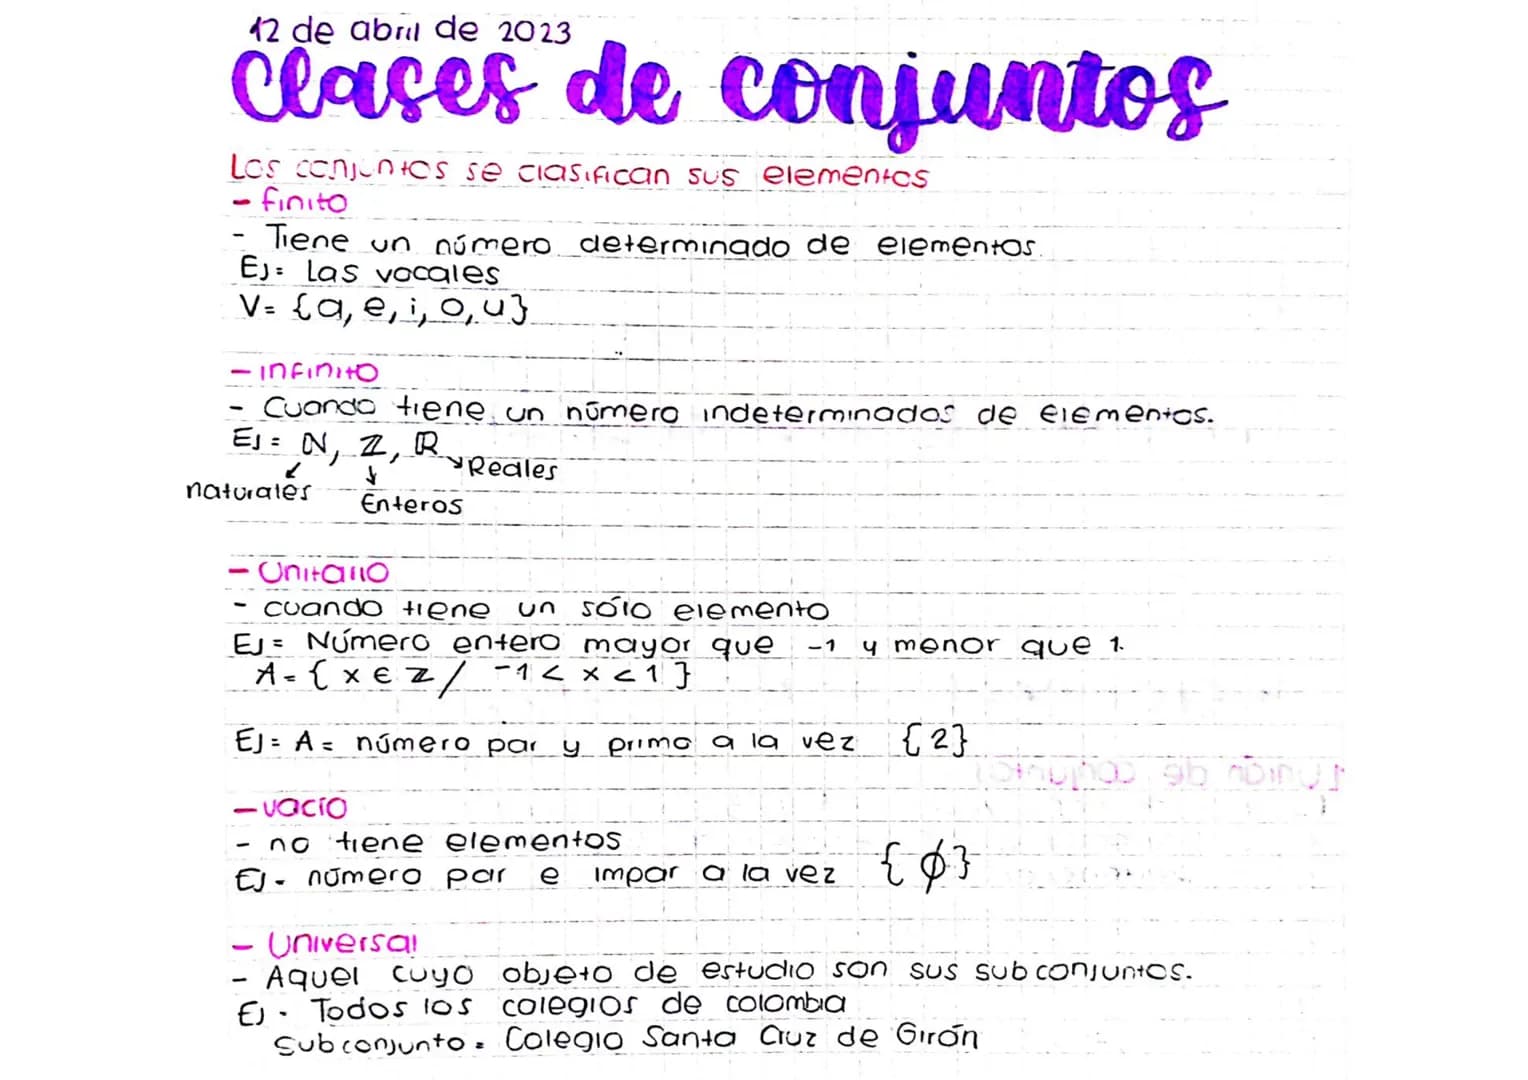 12 de abril de 2023
Clases de conjuntos
Los conjuntos se clasifican sus elementos
- finito
- Tiene un número determinado de elementos.
EJ: Las vocales
V= {a, e, i, o, u}
- infinito
- Cuando tiene un número indeterminados de elementos.
EJ: ℕ, ℤ, ℝ
Reales
naturales
Enteros
- Unitario
- cuando tiene un sólo elemento
EJ= Número entero mayor que -1 y menor que 1.
A={x∈ℤ/ -1<x<1}
EJ= A= número par y primo a la vez {2}
1. Unión de conjuntos
- vacío
- no tiene elementos
EJ- número par e impar a la vez {∅}
- Universal
- Aquel cuyo objeto de estudio son sus subconjuntos.
EJ. Todos los colegios de colombia
Subconjunto = Colegio Santa Cruz de Girón